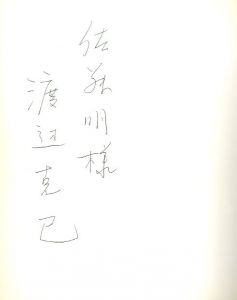 佐藤明様
渡辺克巳